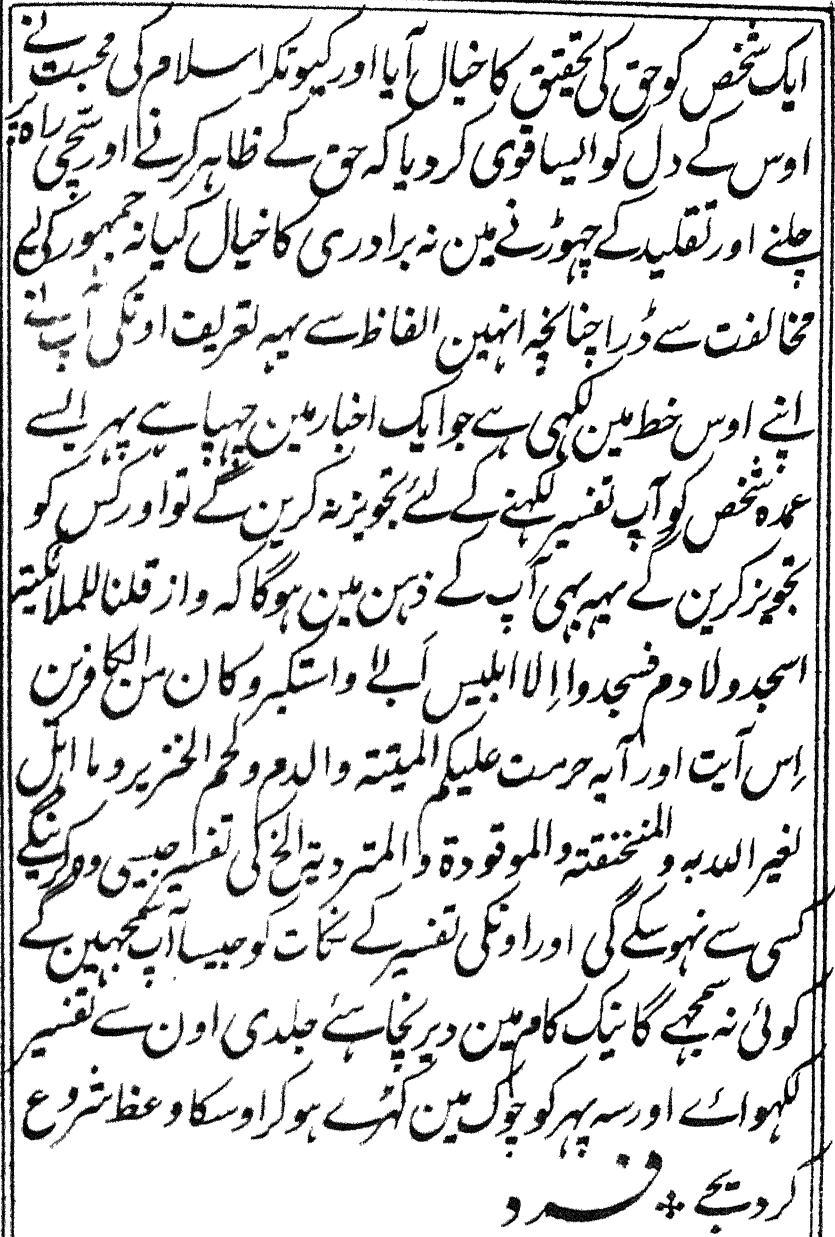 ایک شخص کو حق کی تحقیق کا خیال آیا اور کیونکر اسلام کی محبت نے
اوس کے دل کو ایسا قوی کر دیا کہ حق کے ظاہر کرنے اور سچی راہ پر
چلنے اور تقلید کے چہوڑنے مین نہ برادری کا خیال کیا نہ جمہور کی
مخالفت سے ڈرا چنانچہ انہین الفاظ سے یہہ تعریف اونکی آپ نے
اپنے اوس خط مین لکہی ہے جو ایک اخبار مین چہپا ہے پہر ایسے
عمدہ شخص کو آپ تفسیر لکہنے کے لئے تجویز نہ کرین گے تو اور کس کو
تجویز کرین گے یہہ بہی آپ کے ذہن مین ہوگا کہ واز قلنا للملائکتہ
اسجدو لادم فسجدوا اِلا ابلیس اَبےٰ واستکبر وکان من الکافرین
اِس آیت اور آیہ حرمت علیکم المیتتہ والدم ولحم الخنزیر وما اہل
لغیر اللہ بہ والمنخنقتہ والموقودۃ والمتردیتہ الخ کی تفسیر جیسی وہ کرینگے
کسی سے نہو سکے گی اور اونکی تفسیر کے نکات کو جیسا آپ سمجہین گے
کوئی نہ سمجہے گا نیک کام مین دیر نچاہئے جلدی اون سے تفسیر
لکہوائے اور سہ پہر کو چوک مین کہڑے ہو کر اوسکا وعظ شروع
کر دیجے ❖ فرد